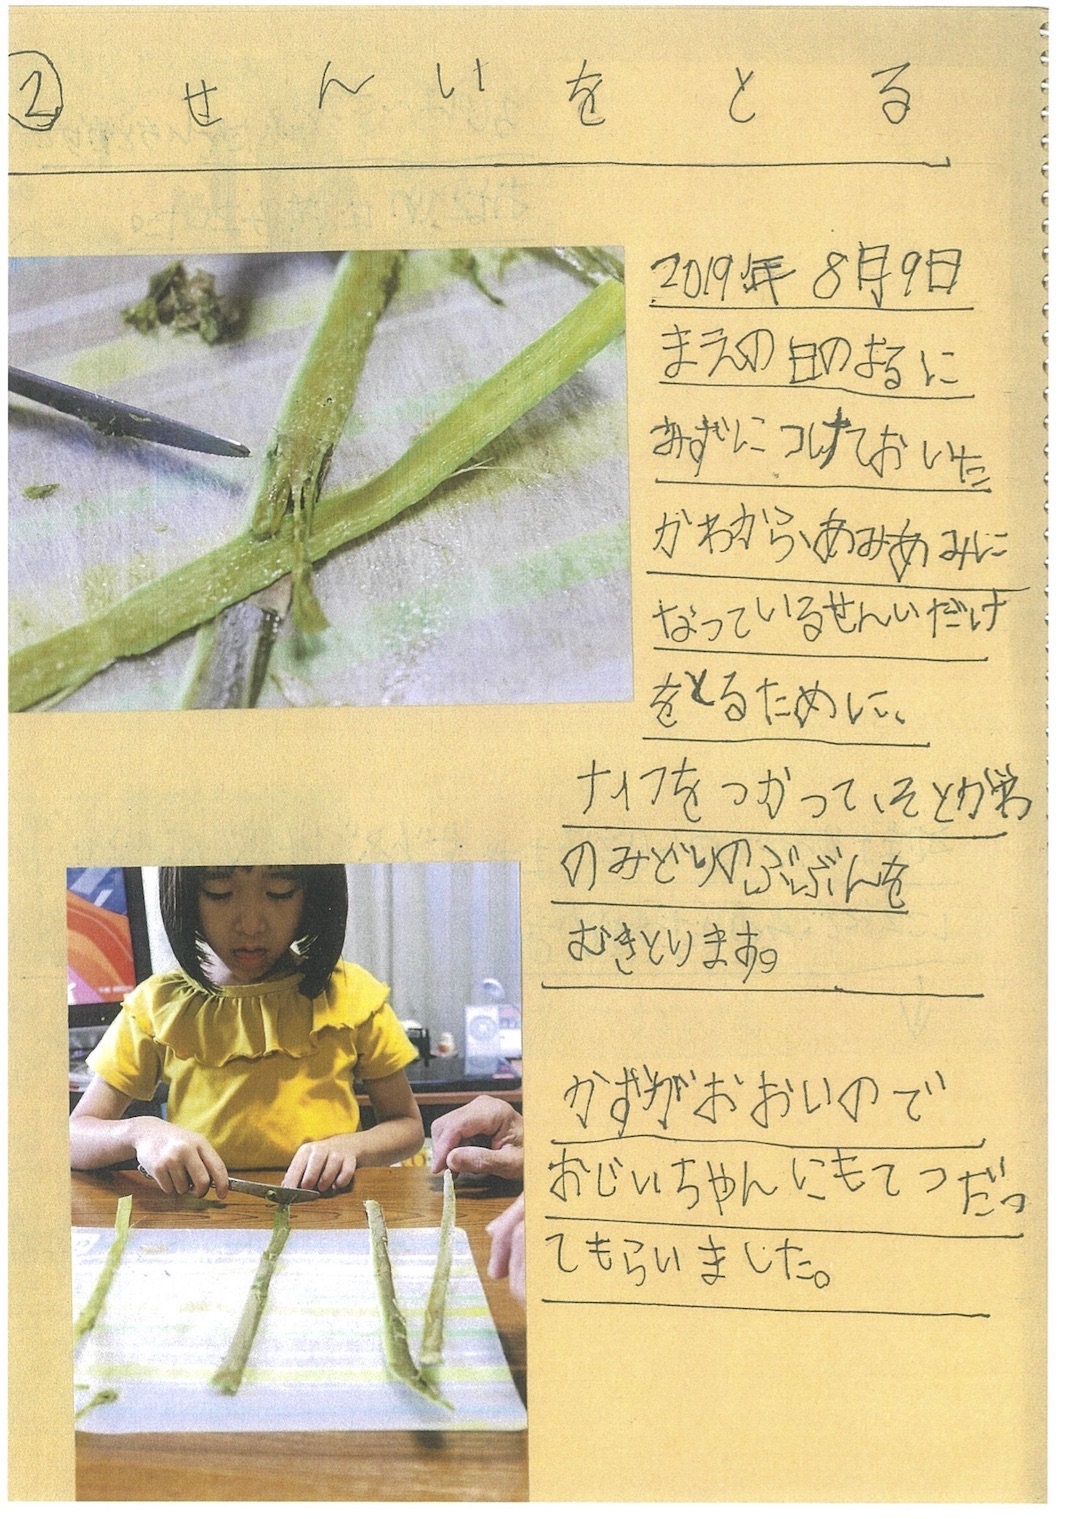 ② せんいをとる
2019年 8月9日
まえの日のよるに
みずにつけておいた
かわから、あみあみに
なっているせんいだけ
をとるために、
ナイフをつかって、そとがわ
のみどりのぶぶんを
むきとります。
かずがおおいので
おじいちゃんにもてつだっ
てもらいました。